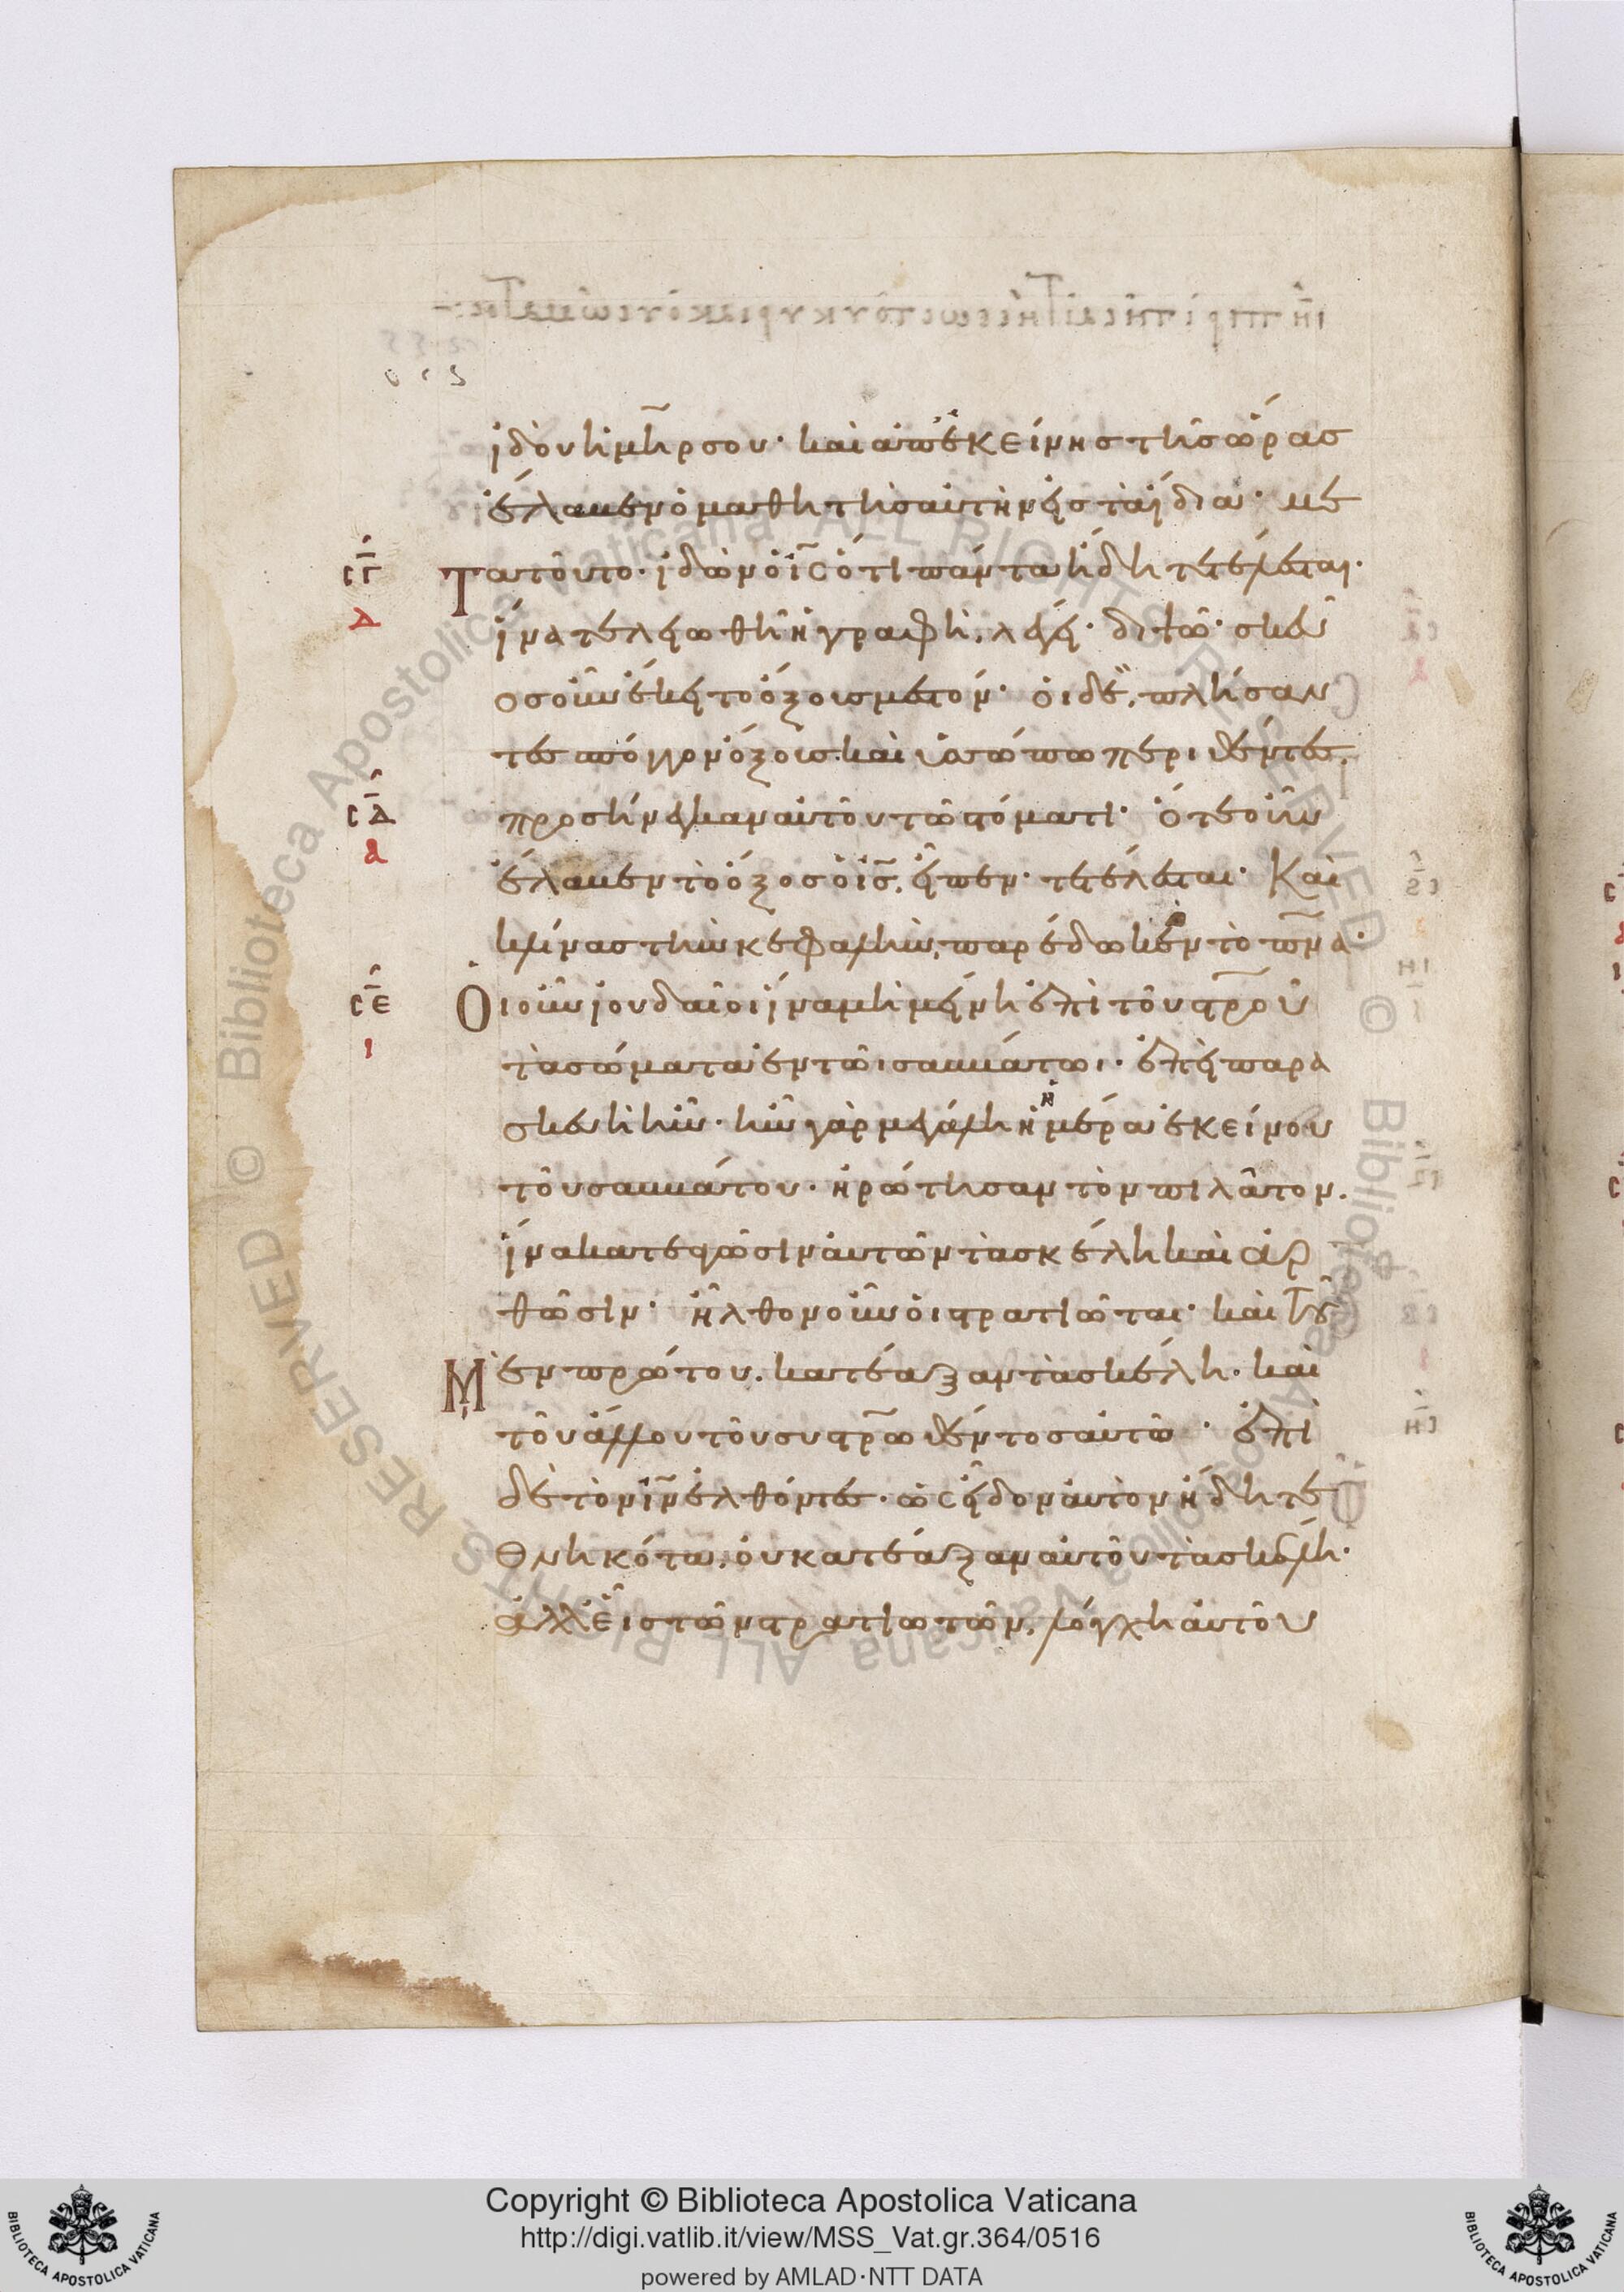 ἰδοὺ ἡ μηρ σου· καὶ ἀπ' ἐκείνης τῆς ὥρας
ἔλαβεν ὁ μαθητὴς αὐτὴν εἰς τὰ ἴδια· με
σγ
Τὰ τοῦτο· ἰδὼν ὁ ις ὅτι πάντα ἤδη τετέλεσται·
δ
ἵνα τελειωθῆ ἡ γραφή, λέγει· διψῶ· σκεῦ
ος οὖν ἔκειτο ὄξους μεστόν· οἱ δὲ, πλήσαν
τες σπόγγον ὄξους καὶ ὑσσώπω περιθέντες,
σδ
προσήνεγκαν αὐτοῦ τῶ στόματι· ὅτε οὖν
α
ἔλαβεν τὸ ὄξος ὁ ις, εἶπεν· τετέλεσται· Καὶ
κλίνας τὴν κεφαλὴν, παρέδωκεν τὸ πνα·
σε
Οἱ οὖν ἰουδαῖοι ἵνα μὴ μείνη ἐπὶ τοῦ στρου
ι
τὰ σώματα ἐν τῶι σαββάτωι· ἐπεὶ παρα
σκευὴ ἦν· ἦν γὰρ μεγάλη ἡ ἡμέρα ἐκείνου
τοῦ σαββάτου· ἠρώτησαν τὸν πιλᾶτον.
ἵνα κατεαγῶσιν αὐτῶν τὰ σκέλη καὶ ἀρ
θῶσιν· ἦλθον οὖν οἱ στρατιῶται· καὶ τοῦ
Μὲν πρώτου. κατέαξαν τὰ σκέλη· καὶ
τοῦ ἄλλου τοῦ συστρωθέντος αὐτῶ· ἐπὶ
δὲ τὸν ιν ἐλθόντες· ὡς εἶδον αὐτὸν ἤδη τε
θνηκότα, οὐ κατέαξαν αὐτοῦ τὰ σκέλη·
ἀλλ' εἷς τῶν στρατιωτῶν, λόγχη αὐτοῦ
Copyright © Biblioteca Apostolica Vaticana
http://digi.vatlib.it/view/MSS_Vat.gr.364/0516
powered by AMLAD·NTT DATA
BIBLIOTECA APOSTOLICA VATICANA
BIBLIOTECA APOSTOLICA VATICANA